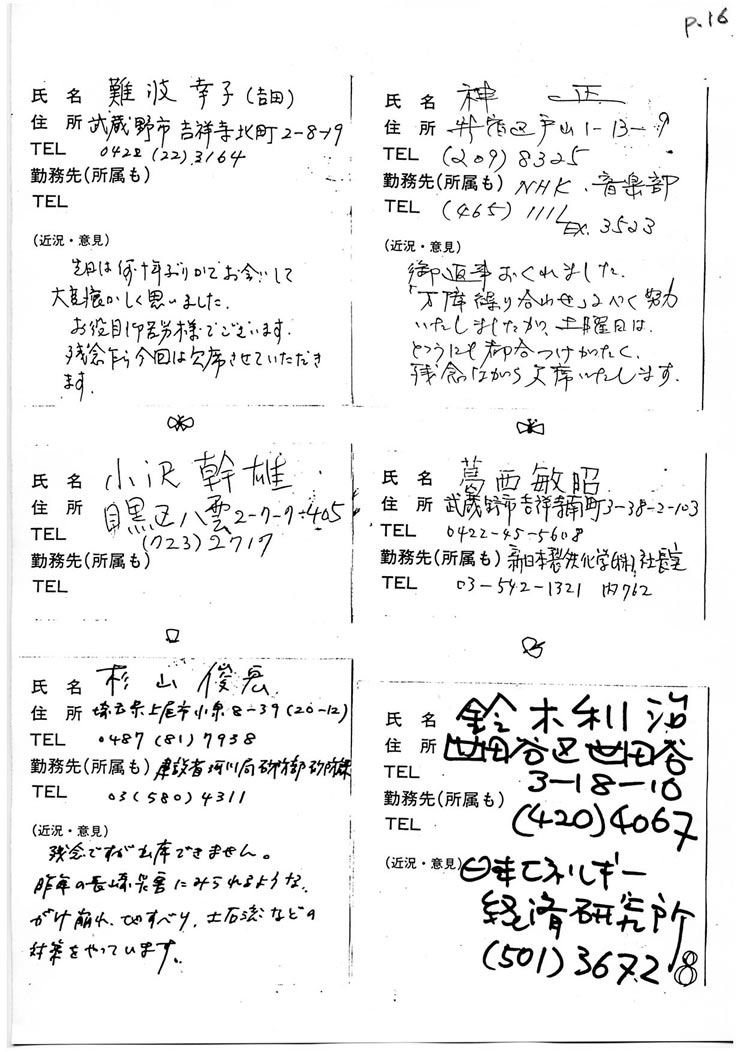 p.16
氏 名 難波幸子(吉田)
住 所 武蔵野市吉祥寺北町2-8-19
TEL 0422(22)3164
勤務先(所属も)
TEL
(近況・意見)
先日は何十年ぶりかでお会いして
大変懐かしく思いました.
お役目御苦労様でございます.
残念乍ら今回は欠席させていただき
ます.
氏 名 神 正
住 所 新宿区戸山1-13-9
TEL (209)8325
勤務先(所属も) NHK.音楽部
TEL (465)1111 EX.3523
(近況・意見)
御返事おくれました.
「万障繰り合わせ」るべく努力
いたしましたが、土曜日は、
どうにも都合つけがたく、
残念ながら欠席いたします.
氏 名 小沢幹雄
住 所 目黒区八雲2-7-7-405
TEL (723)2717
勤務先(所属も)
TEL
氏 名 葛西敏昭
住 所 武蔵野市吉祥寺南町3-38-2-103
TEL 0422-45-5608
勤務先(所属も) 新日本製鉄化学(株)社長室
TEL 03-542-1321 内762
氏 名 杉山俊宏
住 所 埼玉県上尾市小泉8-39(20-12)
TEL 0487(81)7938
勤務先(所属も) 建設省河川局砂防部砂防課
TEL 03(580)4311
(近況・意見)
残念ですが出席できません。
昨年の長崎災害にみられるような、
がけ崩れ、地すべり、土石流などの
対策をやっています。
氏 名 鈴木利治
住 所 世田谷区世田谷
3-18-16
TEL
勤務先(所属も)
TEL (420)4067
(近況・意見) 日本エネルギー
経済研究所
(501)3672
8